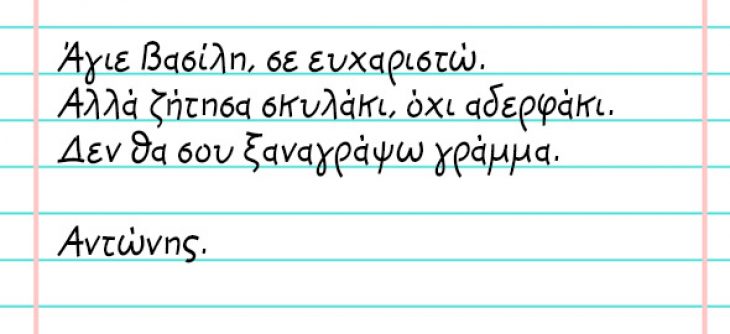 Άγιε Βασίλη, σε ευχαριστώ.
Αλλά ζήτησα σκυλάκι, όχι αδερφάκι.
Δεν θα σου ξαναγράψω γράμμα.
Αντώνης.